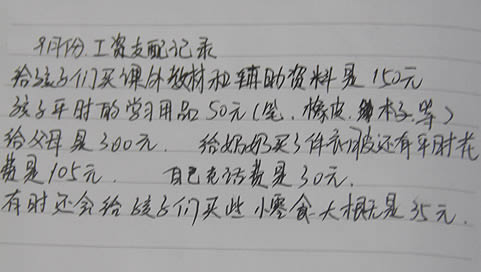 9月份工资支配记录
给孩子们买课外教材和辅助资料是150元
孩子平时的学习用品50元(笔、橡皮、本子、等)
给父母是300元. 给奶奶买了件衣服还有平时花
费是105元. 自己充话费是30元.
有时还会给孩子们买些小零食大概是35元.